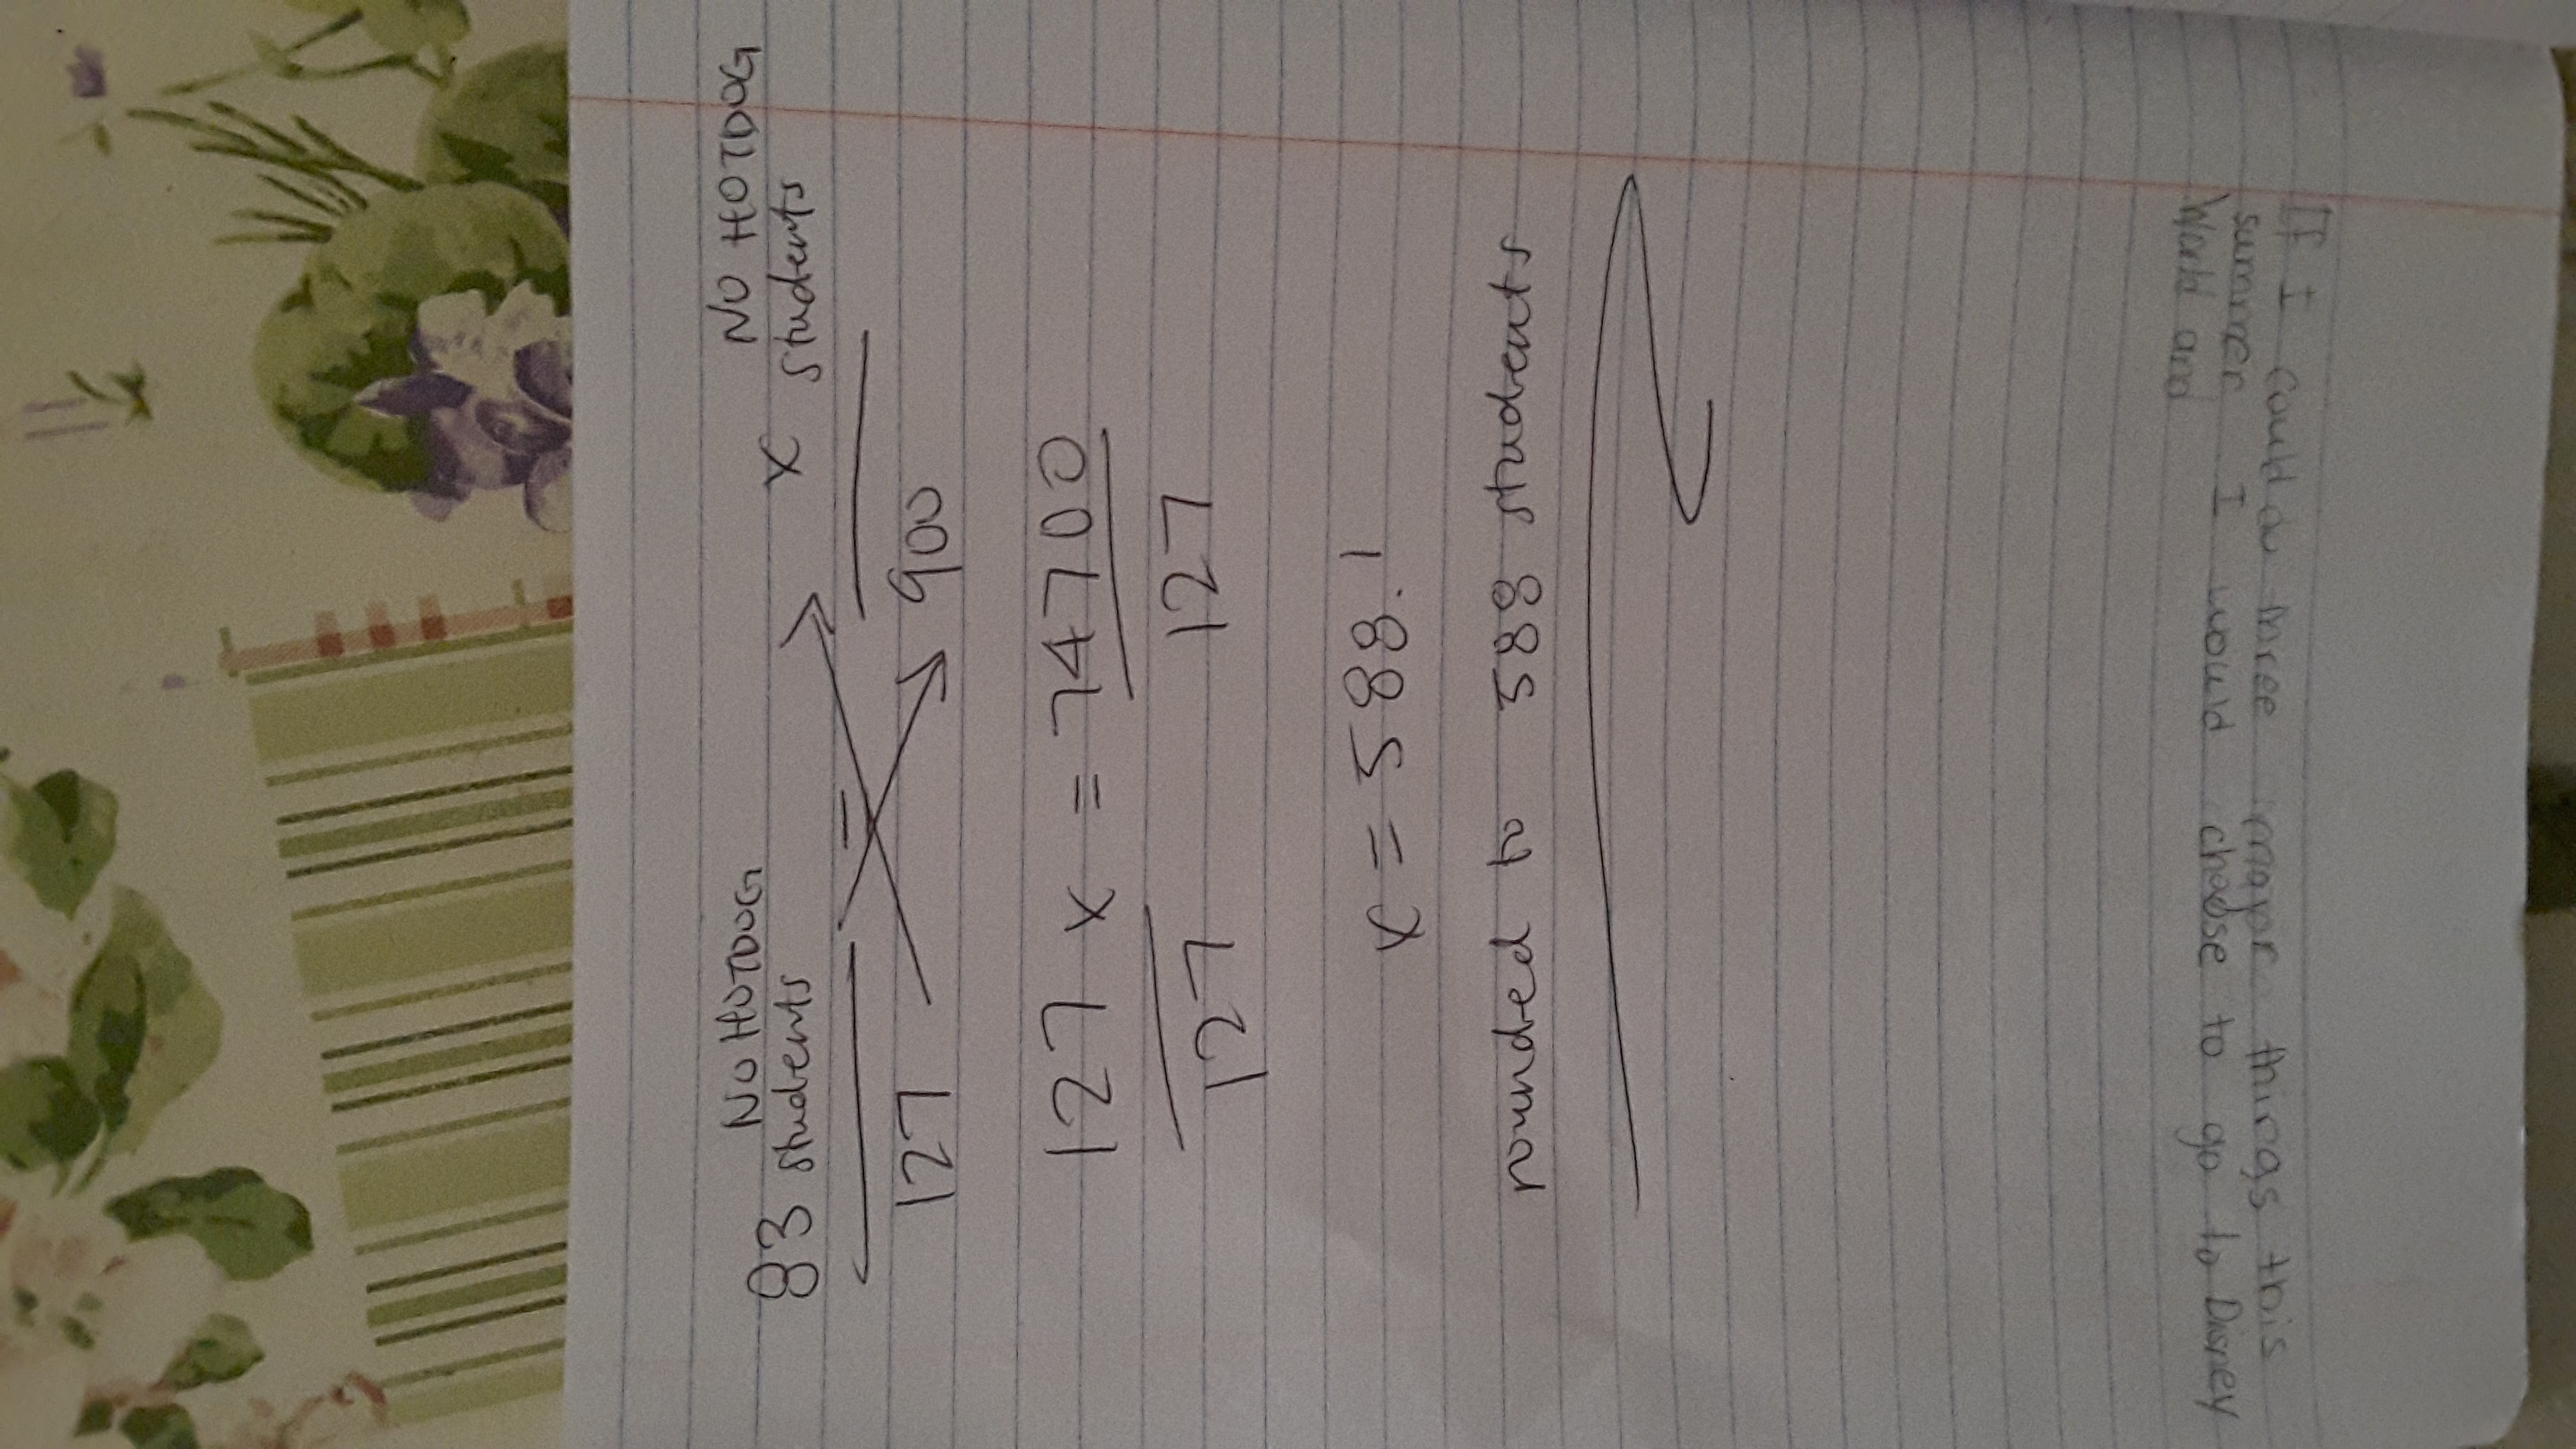 NO HOTDOG NO HOTDOG
83 students = x students
127 900
127x = 74700
127 127
x = 588.1
rounded to 588 students
If I could do three major things this
summer I would choose to go to Disney
World and